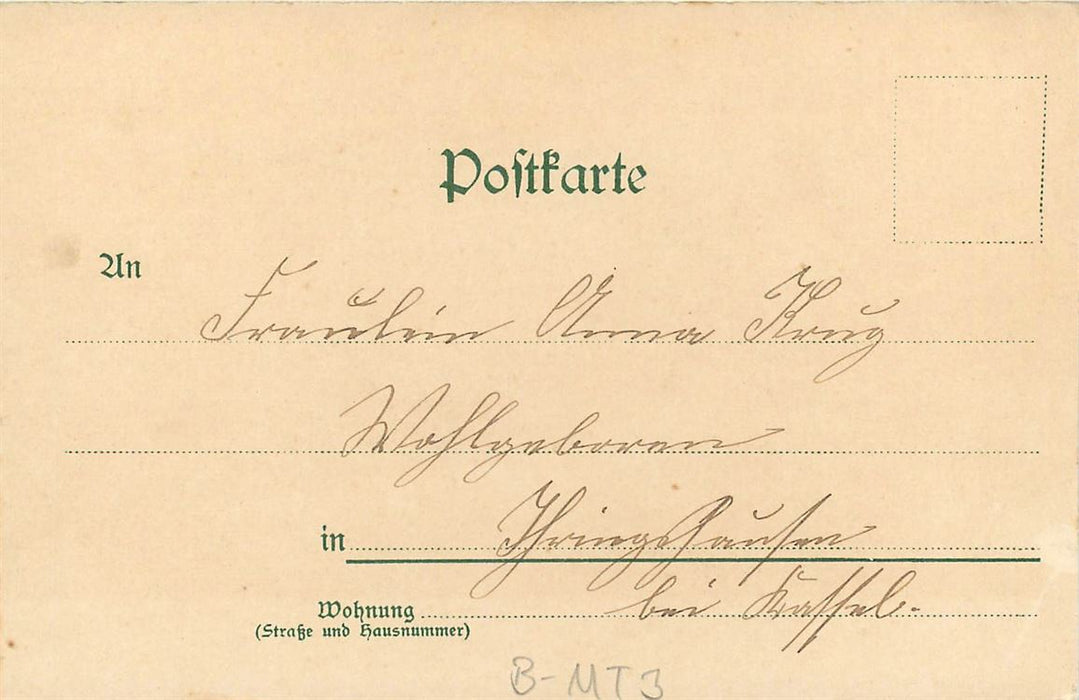 Postkarte
An
Fräulein Anna Krug
Wohlgeboren
in Ihringshausen
Wohnung bei Kassel.
(Straße und Hausnummer)
B-MT3